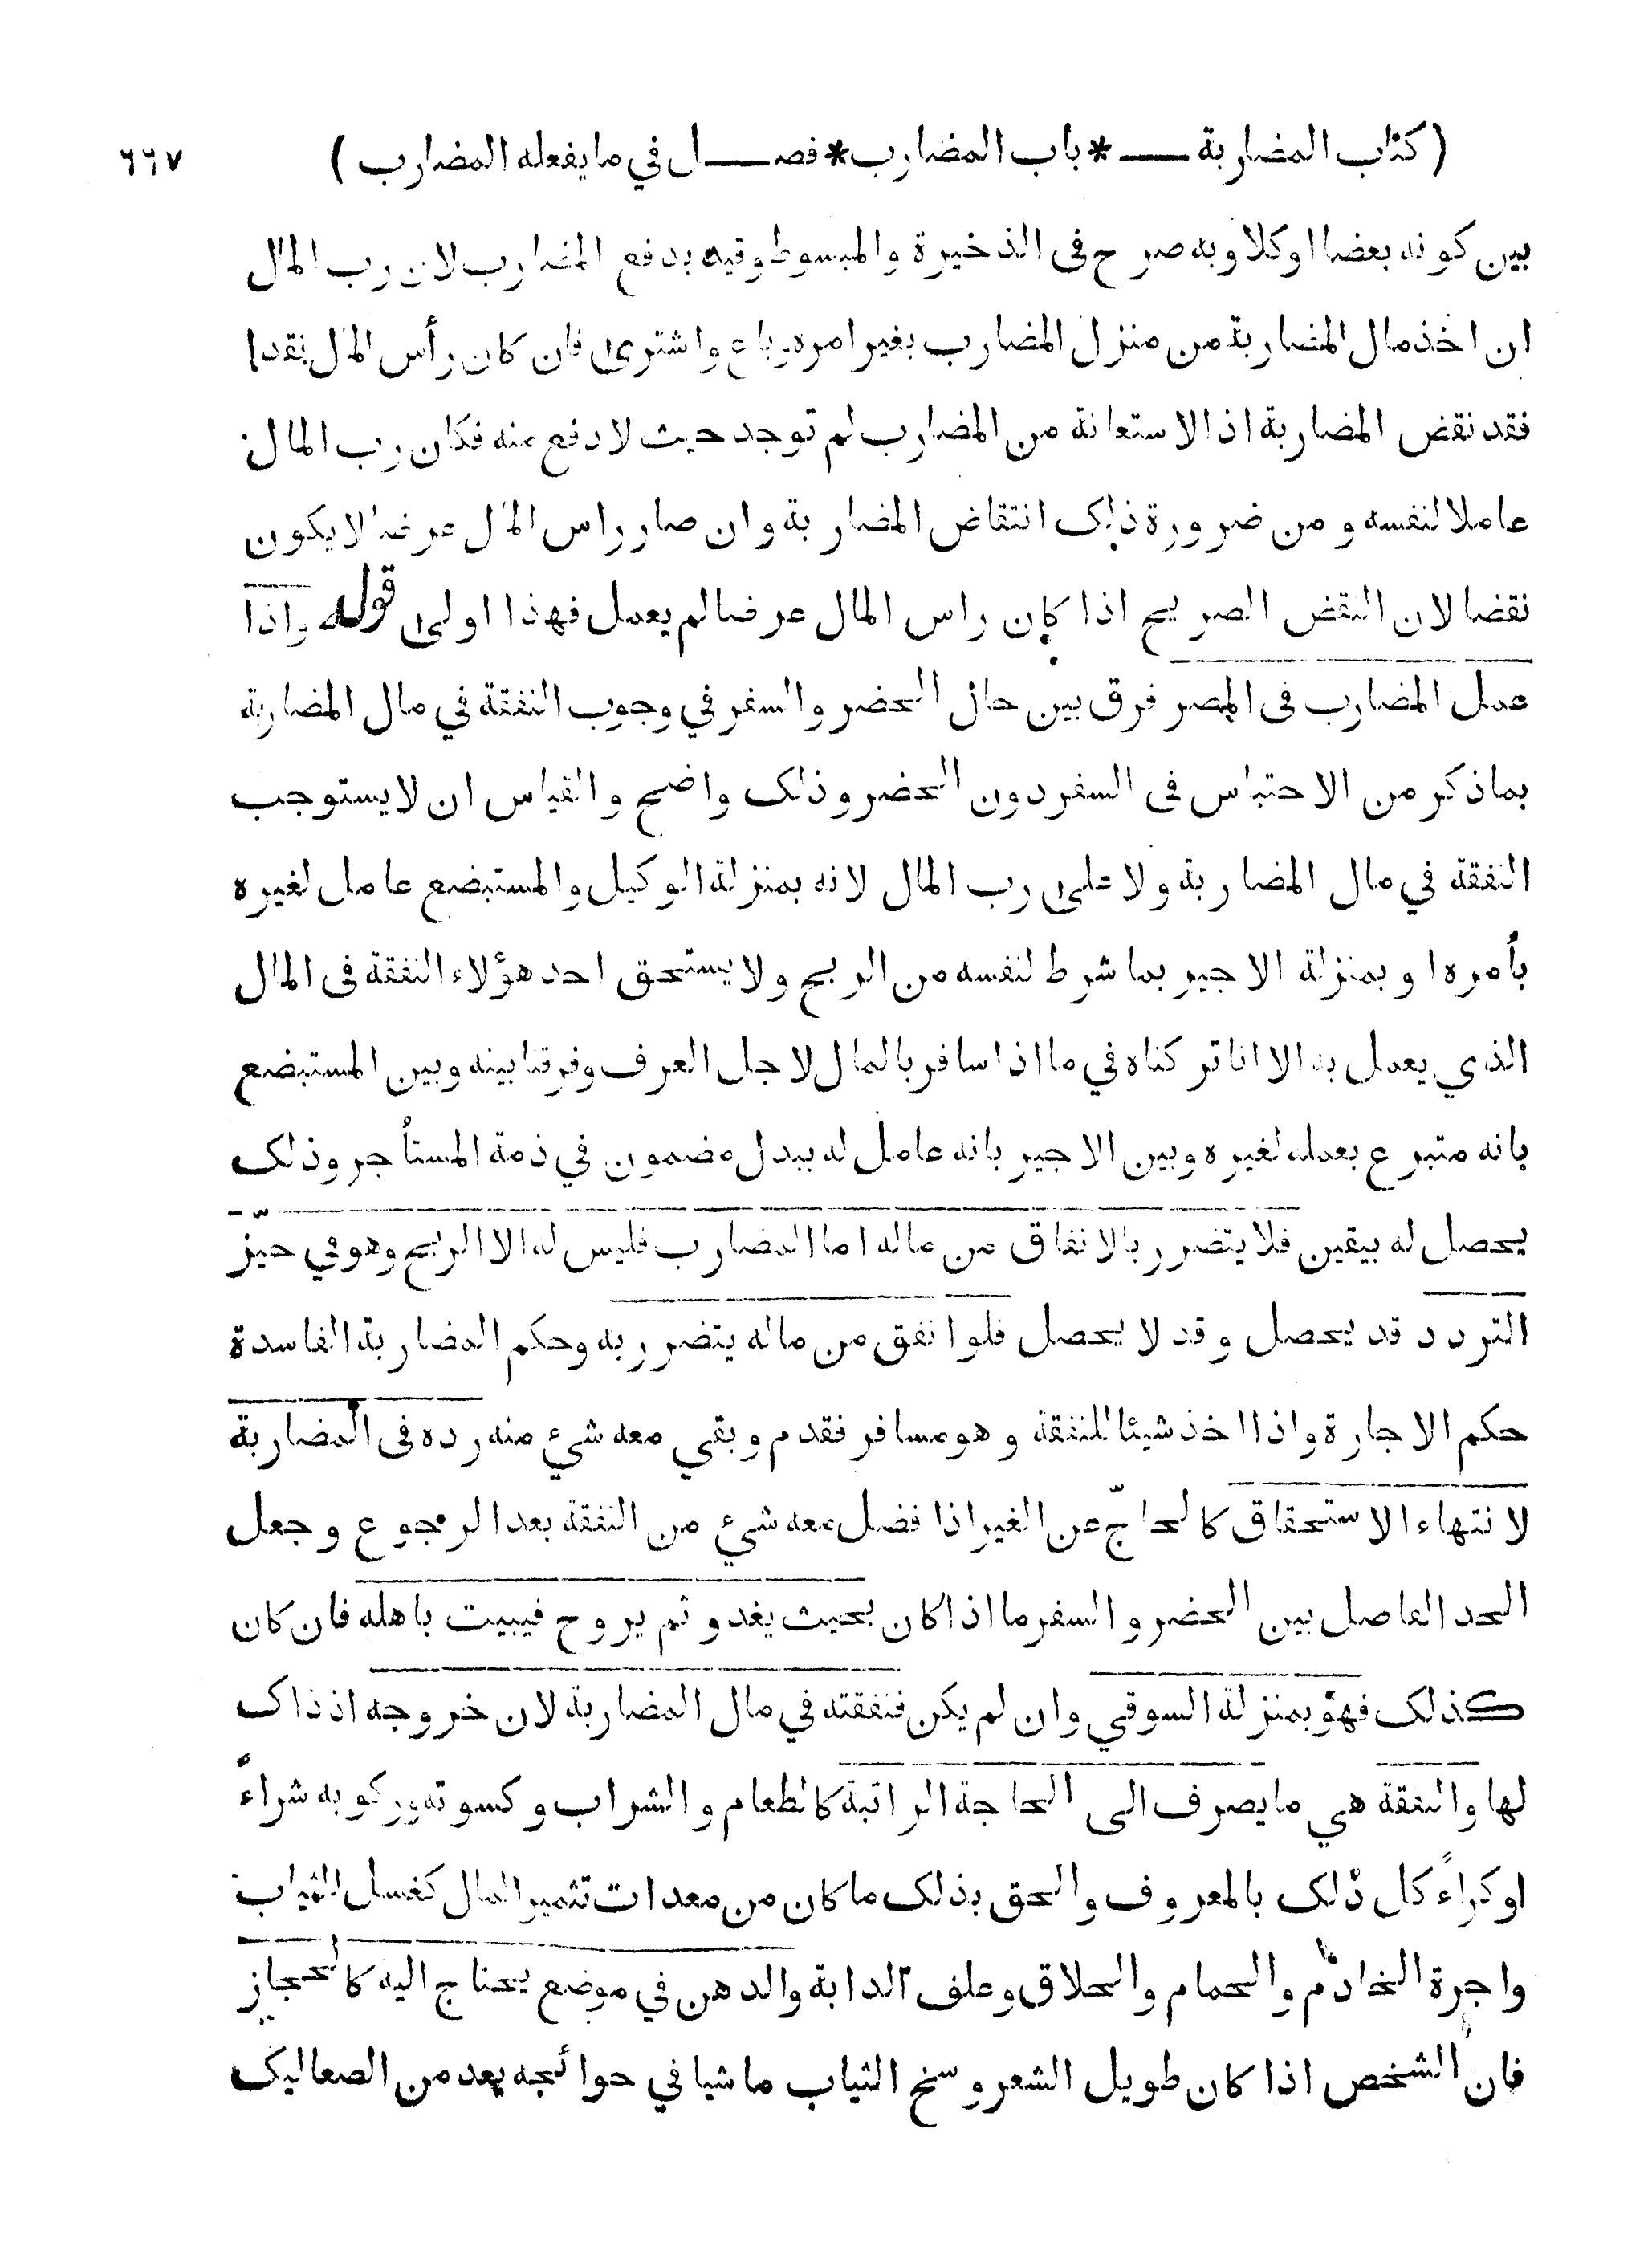 ( كتاب المضاربة — * باب المضارب * فصـــل في ما يفعله المضارب ) ٦٦٧
بين كونه بعضا او كلا وبه صرح فى الذخيرة والمبسوط وقيد بدفع المضارب لان رب المال
ان اخذ مال المضاربة من منزل المضارب بغير امره وباع واشترى فان كان رأس المال نقدا
فقد نقض المضاربة اذ الاستعانة من المضارب لم توجد حيث لا دفع منه فكان رب المال
عاملا لنفسه و من ضرورة ذلك انتقاض المضاربة وان صار راس المال عرضا لا يكون
نقضا لان النقض الصريح اذا كان راس المال عرضا لم يعمل فهذا اولى قوله واذا
عمل المضارب فى المصر فرق بين حال الحضر والسفر في وجوب النفقة في مال المضاربة
بماذكر من الاحتباس فى السفر دون الحضر وذلك واضح والقياس ان لا يستوجب
النفقة في مال المضاربة ولا على رب المال لانه بمنزلة الوكيل والمستبضع عامل لغيره
بأمره او بمنزلة الاجير بما شرط لنفسه من الربح ولا يستحق احد هؤلاء النفقة فى المال
الذي يعمل به الا انا تركناه في ما اذا سافر بالمال لاجل العرف وفرقنا بينه وبين المستبضع
بانه متبرع بعمله لغيره وبين الاجير بانه عامل له ببدل مضمون في ذمة المستأجر وذلك
يحصل له بيقين فلا يتضرر بالانفاق من ماله اما المضارب فليس له الا الربح وهو في حيّز
التردد قد يحصل وقد لا يحصل فلو انفق من ماله يتضرر به وحكم المضاربة الفاسدة
حكم الاجارة واذا اخذ شيئا للنفقة وهو مسافر فقدم وبقي معه شيء منه رده فى المضاربة
لانتهاء الاستحقاق كالحاجّ عن الغير اذا فضل معه شيء من النفقة بعد الرجوع وجعل
الحد الفاصل بين الحضر والسفر ما اذا كان بحيث يغدو ثم يروح فيبيت باهله فان كان
كذلك فهو بمنزلة السوقي وان لم يكن فنفقته في مال المضاربة لان خروجه اذ ذاك
لها والنفقة هي ما يصرف الى الحاجة الراتبة كالطعام والشراب وكسوته وركوبه شراءً
او كراءً كل ذلك بالمعروف والحق بذلك ما كان من معدات تثمير المال كغسل الثياب
واجرة الخادم والحمام والحلاق وعلف الدابة والدهن في موضع يحتاج اليه كالحجاز
فان الشخص اذا كان طويل الشعر وسخ الثياب ماشيا في حوائجه يعد من الصعاليك